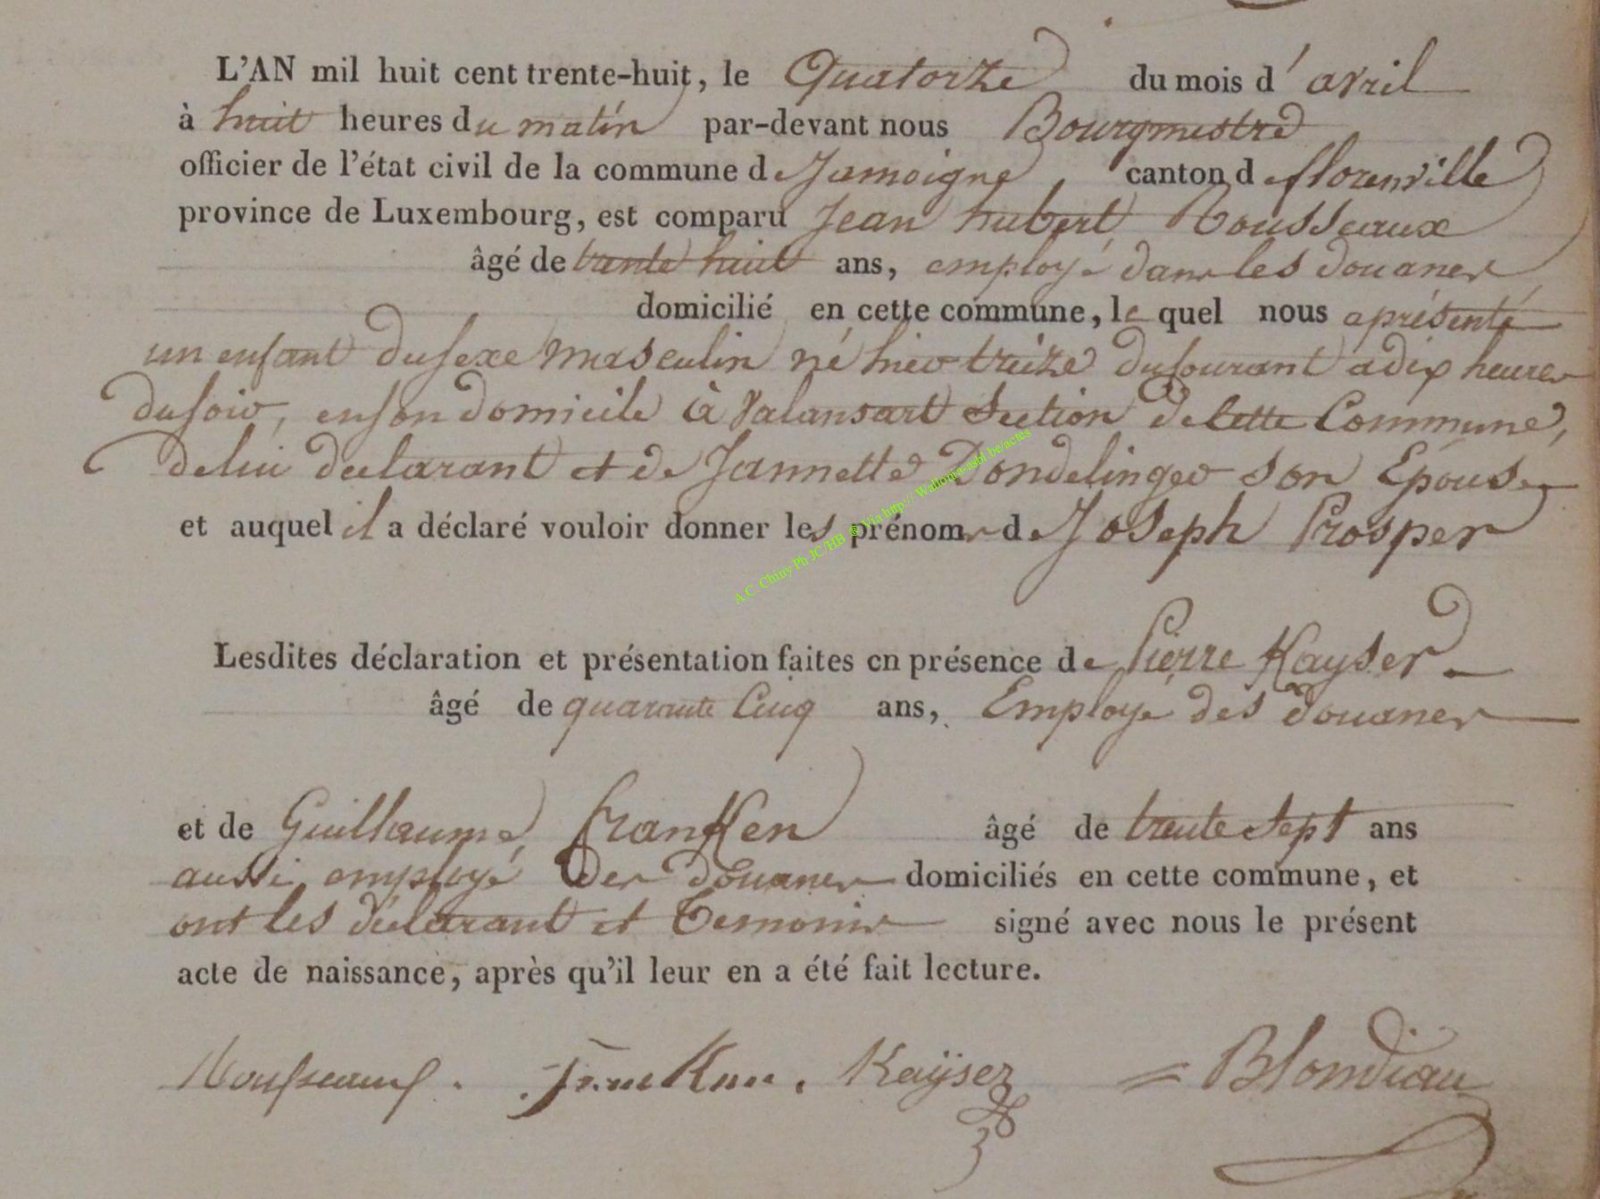 L'AN mil huit cent trente-huit, le Quatorze du mois d'avril
à huit heures du matin par-devant nous Bourgmestre
officier de l'état civil de la commune de Jamoigne canton de florenville
province de Luxembourg, est comparu Jean hubert Rousseaux
âgé de trente huit ans, employé dans les douanes
domicilié en cette commune, le quel nous a présenté
un enfant du sexe masculin né hier treize du courant a dix heures
du soir, en son domicile à Valansart Section de cette Commune,
de lui declarant et de Jannette Dondelinger son Epouse
et auquel il a déclaré vouloir donner les prénoms de Joseph Prosper
Lesdites déclaration et présentation faites en présence de Pierre Kayser
âgé de quarante Cinq ans, Employé des douanes
et de Guillaume franken âgé de trente Sept ans
aussi employé des douanes domiciliés en cette commune, et
ont les déclarant et temoins signé avec nous le présent
acte de naissance, après qu'il leur en a été fait lecture.
Rousseaux. Franken. Kaÿser = Blondiau
A.C. Chiny Ph JC/HB & Via http:// Wallonia-asbl.be/actes